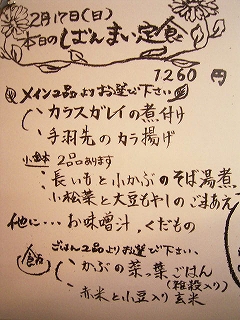 2月17日(日)
本日のしばんまい定食
1260円
メイン2品よりお選び下さい
カラスガレイの煮付け
手羽先のカラ揚げ
小鉢 2品あります
長いもと小かぶのそば湯煮
小松菜と大豆もやしのごまあえ
他に…お味噌汁、くだもの
ごはん2品よりお選び下さい、
かぶの菜っ葉ごはん
(雑穀入り)
赤米と小豆入り玄米